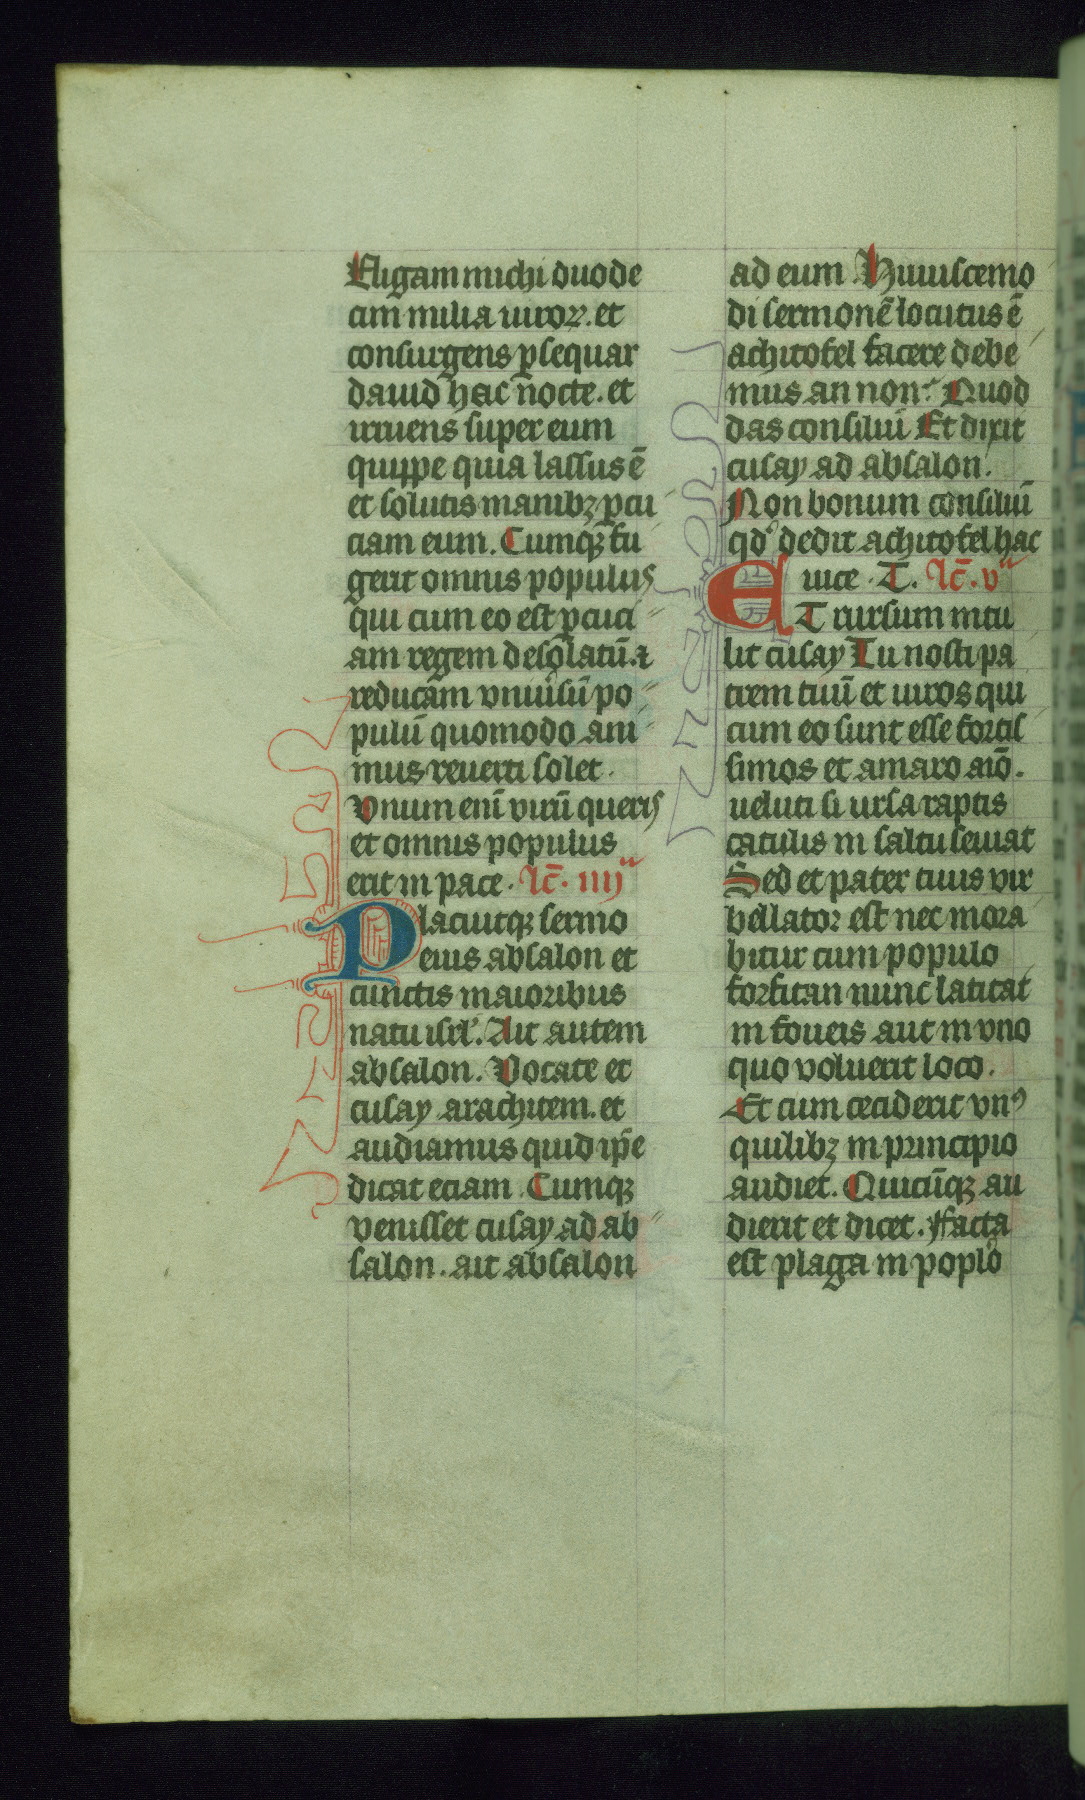 Eligam michi duode
cim milia uiroꝝ. et
consurgens ꝑsequar
dauid hac nocte. et
irruens super eum
quippe quia lassus ē
et solutis manibꝫ ꝑcu
ciam eum. Cumqꝫ fu
gerit omnis populus
qui cum eo est ꝑcuci
am regem desolatū. ⁊
reducam vniūsū po
pulū quomodo ani
mus reuerti solet.
Vnum enī virū queris
et omnis populus
erit in pace. lc̄. iiij
Placuitqꝫ sermo
eius absalon et
cunctis maioribus
natu isrl'. Ait autem
absalon. Vocate et
cusay arachitem. et
audiamus quid ip̄e
dicat eciam. Cumqꝫ
venisset cusay ad ab
salon. ait absalon
ad eum. Huiuscemo
di sermonē locutus ē
achitofel facere debe
mus an non? Quod
das consiliū Et dixit
cusay ad absalon.
Non bonum consiliū
qd' dedit achitofel hac
uice. T. lc̄. v
ET rursum intu
lit cusay Tu nosti pa
trem tuū et uiros qui
cum eo sunt esse fortis
simos et amaro aīo.
ueluti si ursa raptis
catulis in saltu seuiat
Sed et pater tuus vir
bellator est nec mora
bitur cum populo
forsitan nunc latitat
in foueis aut in vno
quo voluerit loco.
Et cum ceciderit vnꝰ
quilibꝫ in principio
audiet. Quicūqꝫ au
dierit et dicet. Facta
est plaga in poplo